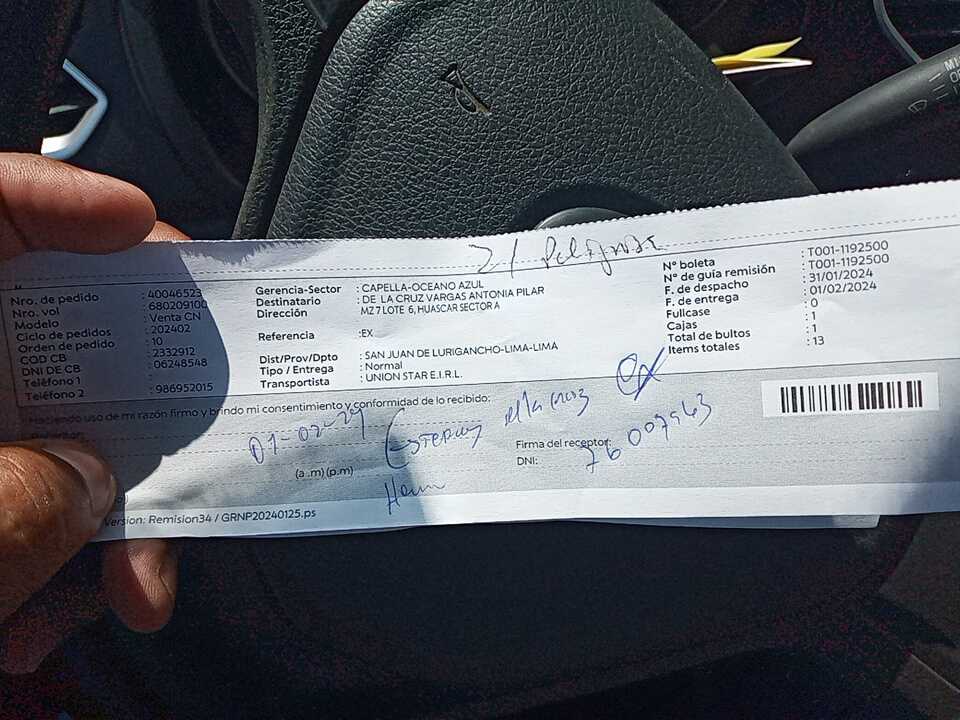 21
Nro. de pedido : 40046523
Nro. vol : 680209100
Modelo : Venta CN
Ciclo de pedidos : 202402
Orden de pedido : 10
COD CB : 2332912
DNI DE CB : 06248548
Teléfono 1 :
Teléfono 2 : 986952015
Gerencia-Sector : CAPELLA-OCEANO AZUL
Destinatario : DE LA CRUZ VARGAS ANTONIA PILAR
Dirección MZ 7 LOTE 6, HUASCAR SECTOR A
Referencia :EX
Dist/Prov/Dpto : SAN JUAN DE LURIGANCHO-LIMA-LIMA
Tipo / Entrega : Normal
Transportista : UNION STAR E.I.R.L.
N° boleta : T001-1192500
N° de guía remisión : T001-1192500
F. de despacho : 31/01/2024
F. de entrega : 01/02/2024
Fullcase : 0
Cajas : 1
Total de bultos : 1
Items totales : 13
Haciendo uso de mi razón firmo y brindo mi consentimiento y conformidad de lo recibido:
01-02-24
(a .m) (p.m)
Firma del receptor:
DNI: 76007963
Version: Remision34 / GRNP20240125.ps